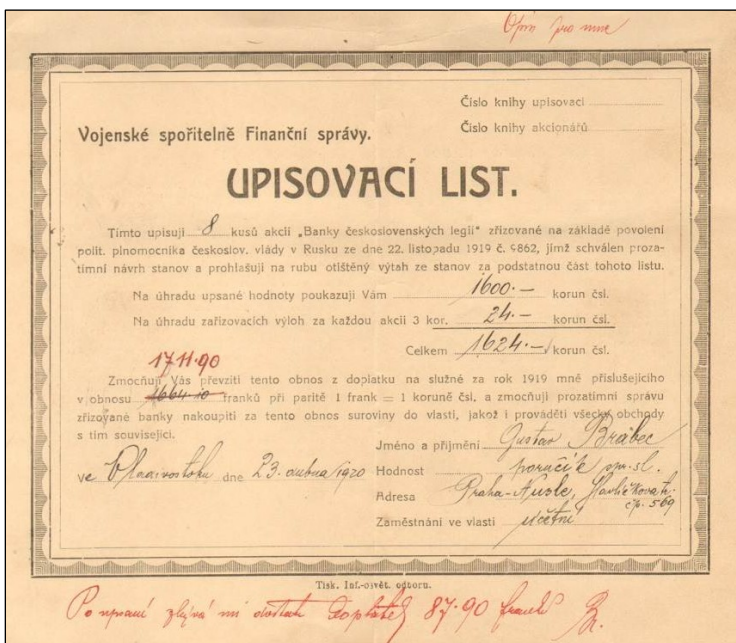 Opis pro mne
Číslo knihy upisovací
Číslo knihy akcionářů
Vojenské spořitelně Finanční správy.
UPISOVACÍ LIST.
Tímto upisuji 8 kusů akcií „Banky československých legií" zřizované na základě povolení
polit. plnomocníka českoslov. vlády v Rusku ze dne 22. listopadu 1919 č. 9862, jímž schválen proza-
tímní návrh stanov a prohlašuji na rubu otištěný výtah ze stanov za podstatnou část tohoto listu.
Na úhradu upsané hodnoty poukazuji Vám 1600.— korun čsl.
Na úhradu zařizovacích výloh za každou akcii 3 kor. 24.— korun čsl.
Celkem 1624.— korun čsl.
1711.90
Zmocňuji Vás převzíti tento obnos z doplatku na služné za rok 1919 mně příslušejícího
v obnosu 1664.10 franků při paritě 1 frank = 1 koruně čsl, a zmocňuji prozatímní správu
zřizované banky nakoupiti za tento obnos suroviny do vlasti, jakož i prováděti všecky obchody
s tím související.
Jméno a příjmení Gustav Brabec
ve Vladivostoku dne 23. dubna 1920
Hodnost poručík
Adresa Praha-Nusle, Havlíčkova tř.
čp. 569
Zaměstnání ve vlasti účetní
Tisk. Inf.-osvět. odboru.
Po upsaní zbývá mi dostati doplatek 87.90 franků Br.